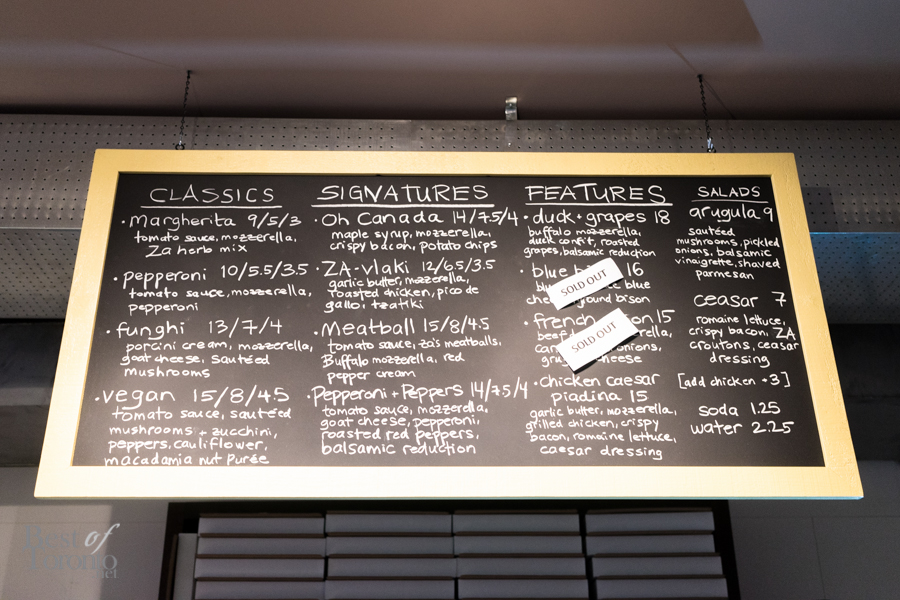 CLASSICS
• Margherita 9/5/3
tomato sauce, mozzerella,
Za herb mix
• pepperoni 10/5.5/3.5
tomato sauce, mozzerella,
pepperoni
• funghi 13/7/4
porcini cream, mozzarella,
goat cheese, sautéed
mushrooms
• vegan 15/8/4.5
tomato sauce, sautéed
mushrooms + zucchini,
peppers, cauliflower,
macadamia nut purée
SIGNATURES
• Oh Canada 14/7.5/4
maple syrup, mozzerella,
crispy bacon, potato chips
• ZA-vlaki 12/6.5/3.5
garlic butter, mozzerella,
roasted chicken, pico de
gallo, tzatiki
• Meatball 15/8/4.5
tomato sauce, za's meatballs,
Buffalo mozzerella, red
pepper cream
• Pepperoni + Peppers 14/7.5/4
tomato sauce, mozzerella,
goat cheese, pepperoni,
roasted red peppers,
balsamic reduction
FEATURES
• duck + grapes 18
buffalo mozzerella,
duck confit, roasted
grapes, balsamic reduction
• blue 16
blue
ground bison
SOLD OUT
• french 15
beef
onions,
cheese
SOLD OUT
• chicken caesar
piadina 15
garlic butter, mozzarella,
grilled chicken, crispy
bacon, romaine lettuce,
caesar dressing
SALADS
arugula 9
sautéed
mushrooms, pickled
onions, balsamic
vinaigrette, shaved
parmesan
ceasar 7
romaine lettuce,
crispy bacon, ZA
croutons, ceasar
dressing
[add chicken +3]
soda 1.25
water 2.25
Best of
Toronto
.net